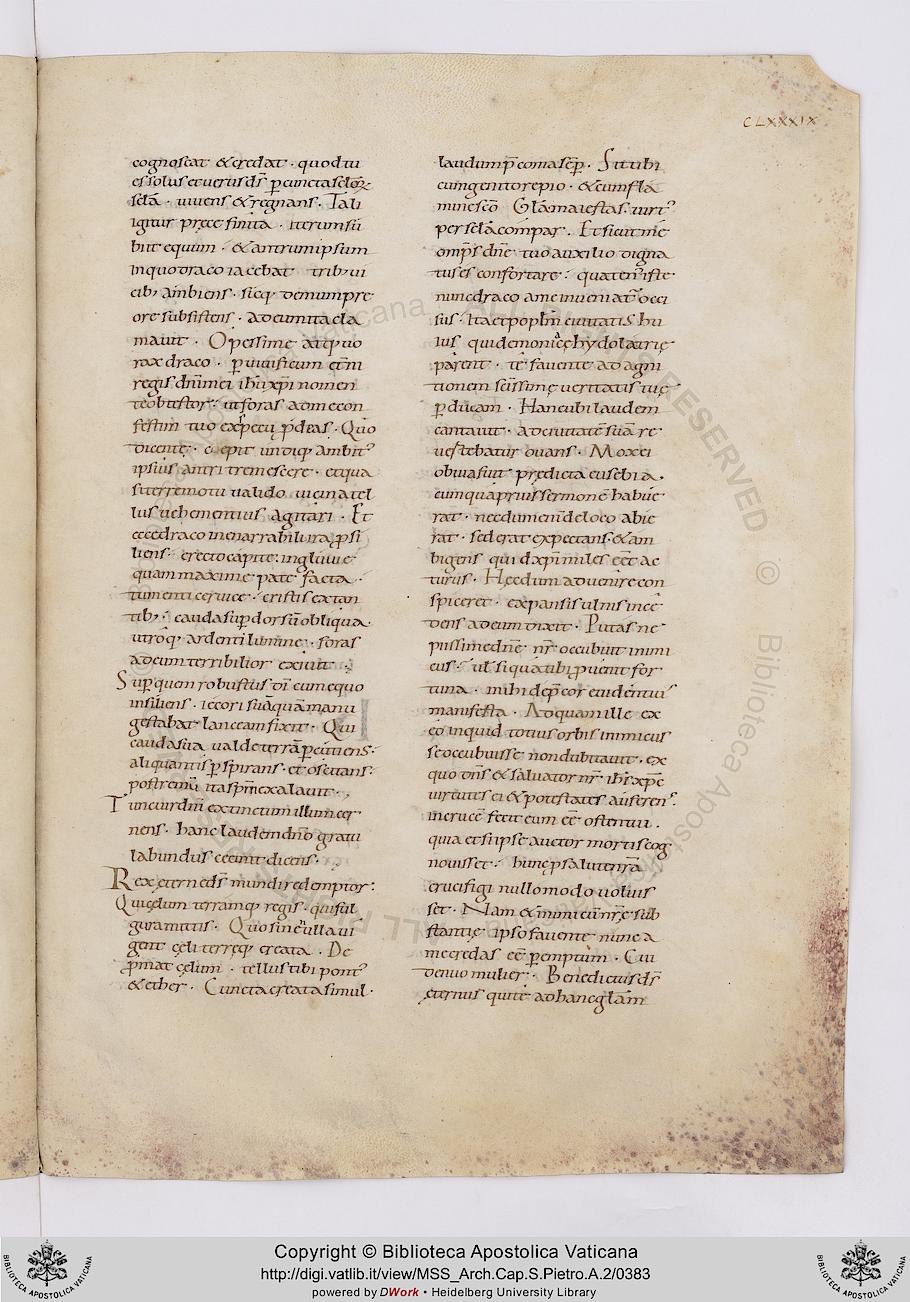 CLXXXIX
cognoscat & credat · quod tu
es solus et uerus d̅s̅ p̲ cuncta sclo̅ꝝ
sc̅la · uiuens & regnans · Tali
igitur prece finita · iterum su
biit equum · & antrum ipsum
in quo draco iacebat trib; ui
cib; ambiens · sicq; demum p̅re
ore subsistens · ad eum ita cla
mauit · O pessime atq; uo
rax draco · p̲ uiuificum & m̅
regis dn̅i mei ih̅u xp̅i nomen
te obtestor : ut foras ad me con
festim tuo ex specu p̅deas · Quo
dicente · coepit undiq; ambit᾽
ipsius antri tremescere · et qua
si terremotu ualido uicina tel
lus uehementius agitari · Et
ecce draco inenarrabilu ira p̲si
liens · erecto capite · ingluuie
quam maxime pate facta ·
tumenti ceruice · cristis extan
tib; · cauda sup̲ dorsu̅ obliqua ·
utroq; ardenti lumine · foras
ad eum terribilior exiuit ·
Sup̲ quem robustus d̅i cum equo
insiliens · iecori sua̅ qua̅ manu
gestabat lanceam fixit · Qui
cauda sua ualde terra̅ p̲cutiens ·
aliquantis p̲ spirans · et oscitans :
postremu̅ ita sp̅m exalauit ·
Tunc uir d̅ni extinctum illum cer
nens · hanc laudem d̅no gratu
labundus cecinit dicens ·
Rex etern ed̅s̅ mundi redemptor :
Qui celum terramq; regis · qui sul
gura mittis · Quo sine n̅ ulla ui
gent celi terreq; creata · De
p̅mat celum · tellus tibi pont᾽
& ether · Cuncta creata simul ·
laudum p̅coma sep̲ · Sit tibi
cum genitore pio · & cum fla
mine sc̅o Gl̅a maiestas · uirt᾽
per sc̅la compar · Et sicut me
omp̅s dn̅e tuo auxilio digna
tus es confortare : quaten᾽ iste
nunc draco a me inueniat᾽ occi
sus · Ita et pop̅lm ciuitatis hu
ius qui demonice hydolatrie
parent · te fauente ad agni
tionem sc̅issime ueritatis tue
p̲ducam · Hanc ubi laudem
cantauit · ad ciuitate̅ sua̅ re
uertebatur ouans · Mox ei
obuia fuit predicta eusebia ·
cum qua prius sermone̅ habue
rat · necdum eni̅ de loco abie
rat · sed erat expectans & am
bigens quid xp̅i miles ee̅t ac
turus · Hec dum aduenire con
spiceret · expansis ulnis ince
dens ad eum dixit · Putas ne
piissime dn̅e nr̅ occubuit inimi
cus · ul̅ si qua tibi p̅uenit for
tuna · mihi dep̅cor euidentius
manifesta · Ad quam ille ex
eo inquid totius orbis inimicus
se occubuisse non dubitauit · ex
quo dn̅s & saluator nr̅ ih̅s xp̅c
uirtutes ei & potestates auferen᾽
in cruce̅ fecit eum ee̅ ostentui ·
quia et si ipse auctor mortis cog
nouisset : hunc p̲ salute nr̅a
crucifigi nullo modo uoluis
set · Nam & inimicu̅ nr̅e sub
stantie ipso fauente nunc a
me credas ee̅ p̲emptum · Cui
denuo mulier · Benedictus d̅s̅
eternus qui te ad hanc gl̅am
Copyright © Biblioteca Apostolica Vaticana
http://digi.vatlib.it/view/MSS_Arch.Cap.S.Pietro.A.2/0383
powered by DWork • Heidelberg University Library